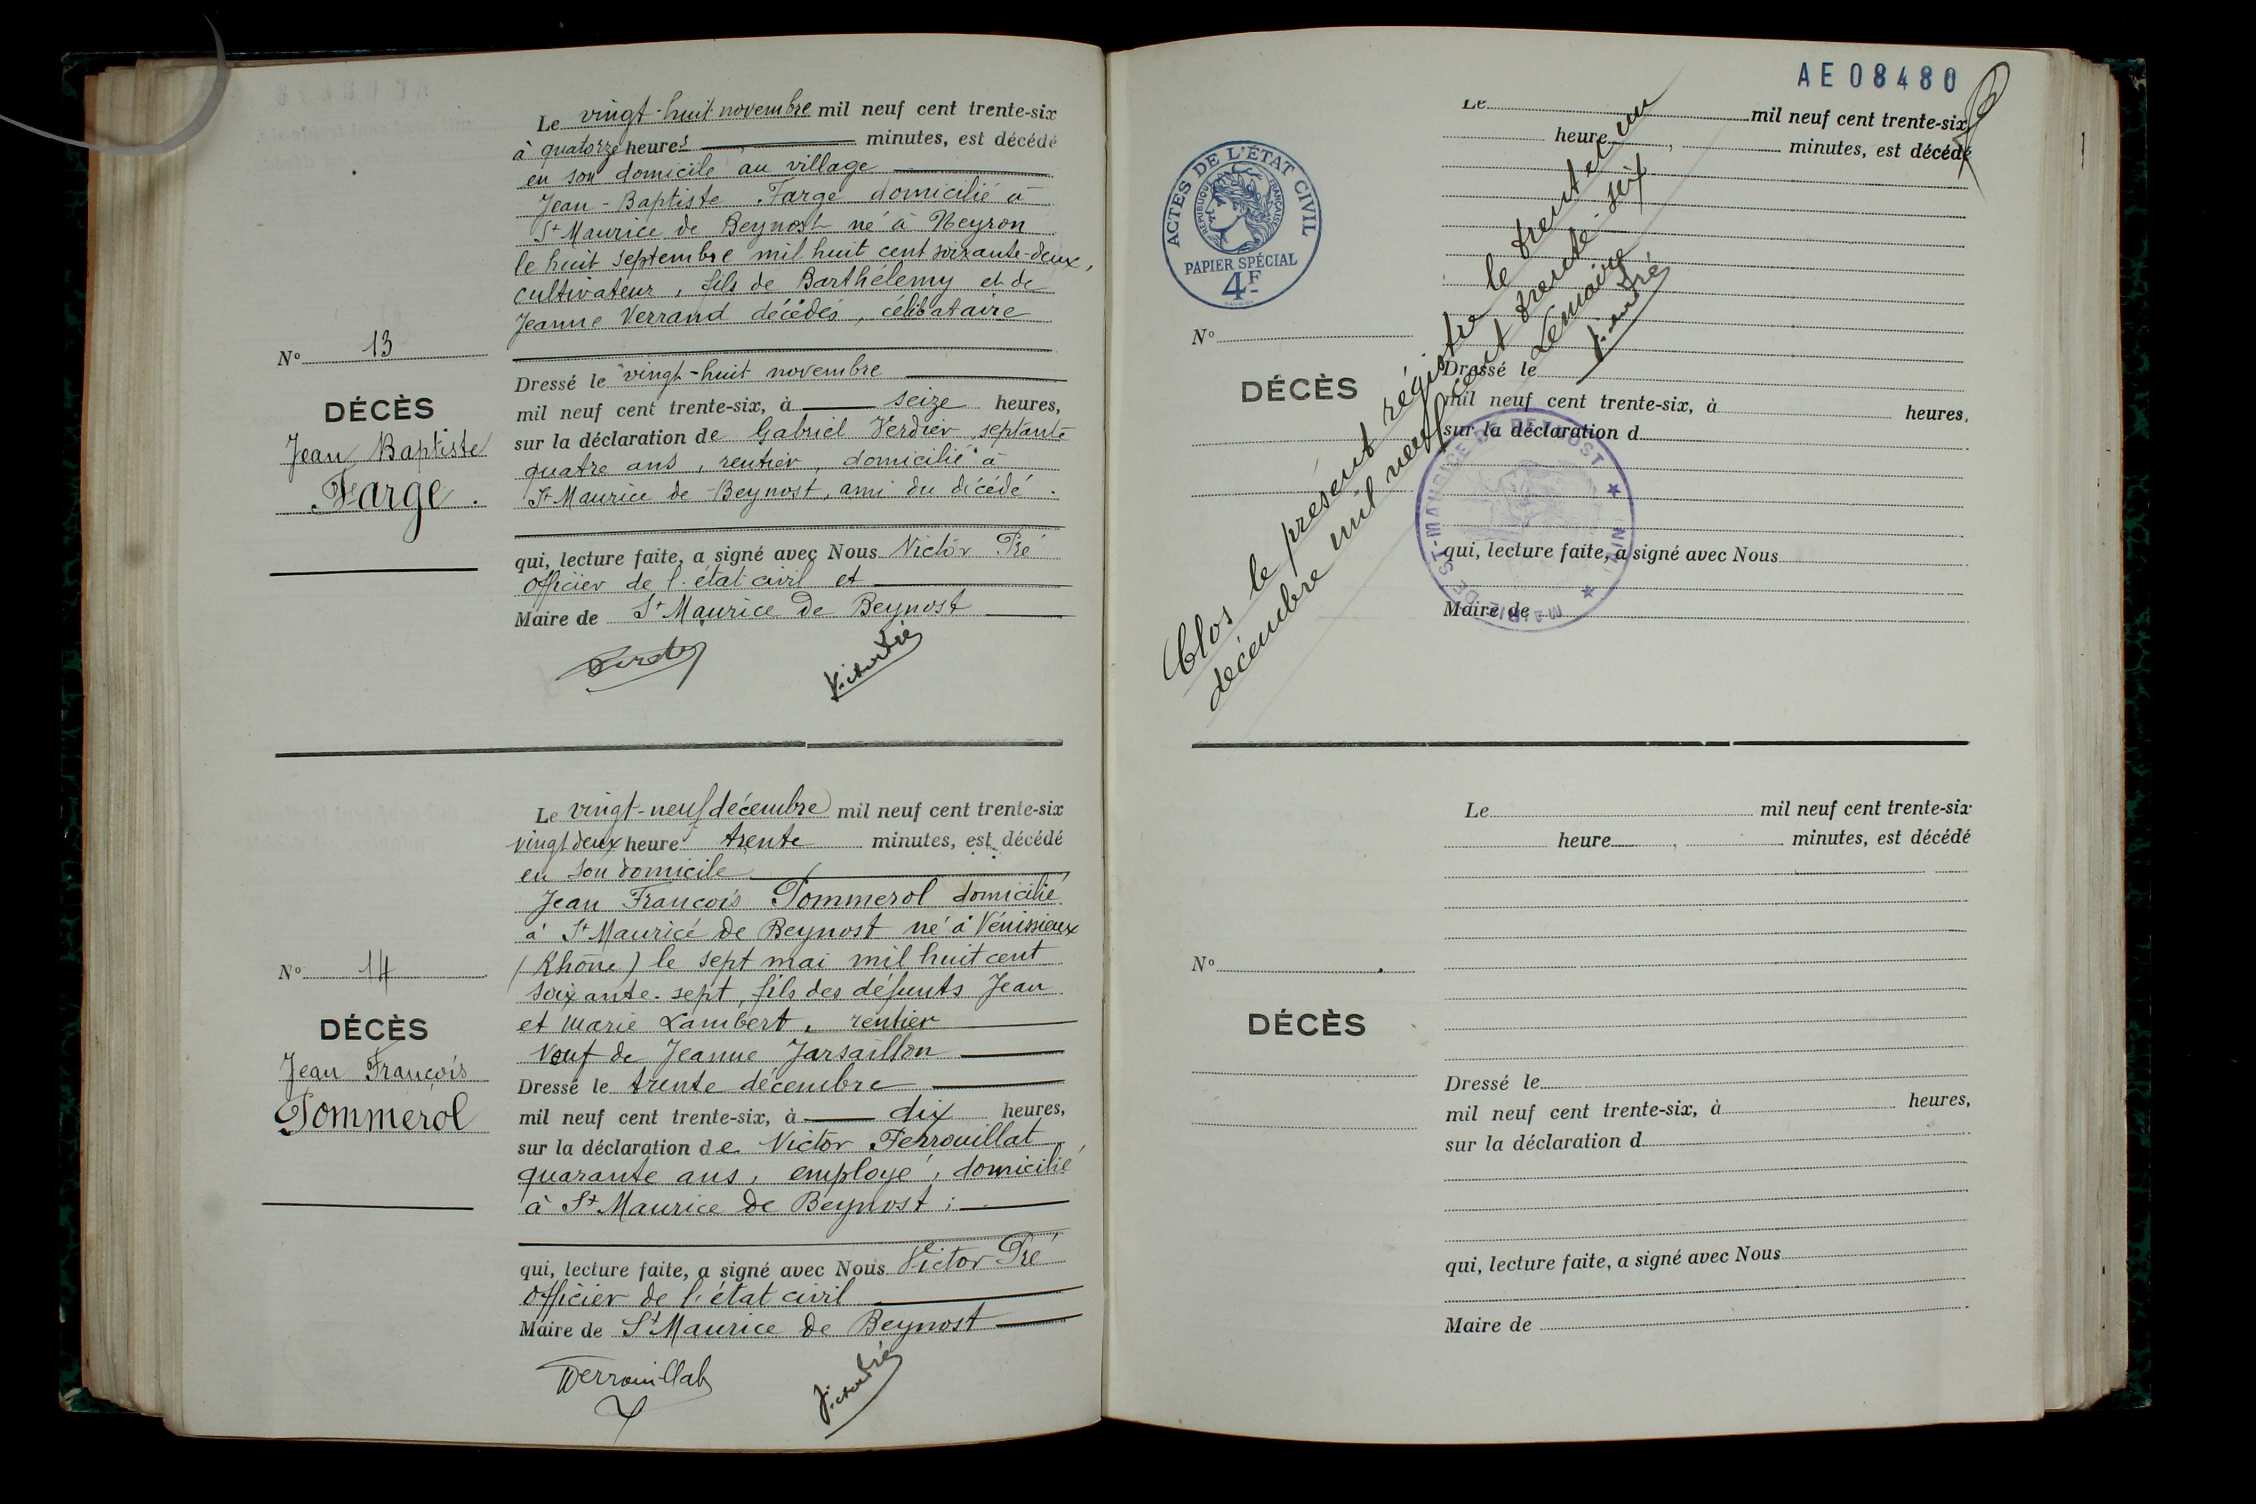 Le vingt-huit novembre mil neuf cent trente-six
à quatorze heures minutes, est décédé
en son domicile au village
Jean-Baptiste Farge domicilié à
St Maurice de Beynost né à Neyron
le huit septembre mil huit cent soixante-deux,
cultivateur, fils de Barthélemy et de
Jeanne Verrand décédés, célibataire
N° 13
DÉCÈS
Jean Baptiste
Farge.
Dressé le vingt-huit novembre
mil neuf cent trente-six, à seize heures,
sur la déclaration de Gabriel Verdier, septante
quatre ans, rentier, domicilié à
St Maurice de Beynost, ami du décédé.
qui, lecture faite, a signé avec Nous Victor Pré
Officier de l'état civil et
Maire de St Maurice de Beynost
Victor Pré
Le vingt-neuf décembre mil neuf cent trente-six
vingt deux heures trente minutes, est décédé
en son domicile
Jean François Pommerol domicilié
à St Maurice de Beynost né à Vénissieux
(Rhône) le sept mai mil huit cent
soixante-sept, fils des défunts Jean
et Marie Lambert, rentier
Veuf de Jeanne Jarsaillon
N° 14
DÉCÈS
Jean François
Pommerol
Dressé le trente décembre
mil neuf cent trente-six, à dix heures,
sur la déclaration de Victor Ferrouillat
quarante ans, employé, domicilié
à St Maurice de Beynost;
qui, lecture faite, a signé avec Nous Victor Pré
Officier de l'état civil
Maire de St Maurice de Beynost
Ferrouillat
Victor Pré
AE08480
ACTES DE L'ÉTAT CIVIL
RÉPUBLIQUE FRANÇAISE
PAPIER SPÉCIAL
4F
Le mil neuf cent trente-six
heure, minutes, est décédé
N°
DÉCÈS
Dressé le
mil neuf cent trente-six, à heures,
sur la déclaration d
qui, lecture faite, a signé avec Nous
Maire de
Clos le présent régistre le trente et un
décembre mil neuf cent trente-six
Le maire
V. Pré
MAIRIE DE ST-MAURICE DE BEYNOST ★ (AIN) ★
Le mil neuf cent trente-six
heure, minutes, est décédé
N°
DÉCÈS
Dressé le
mil neuf cent trente-six, à heures,
sur la déclaration d
qui, lecture faite, a signé avec Nous
Maire de